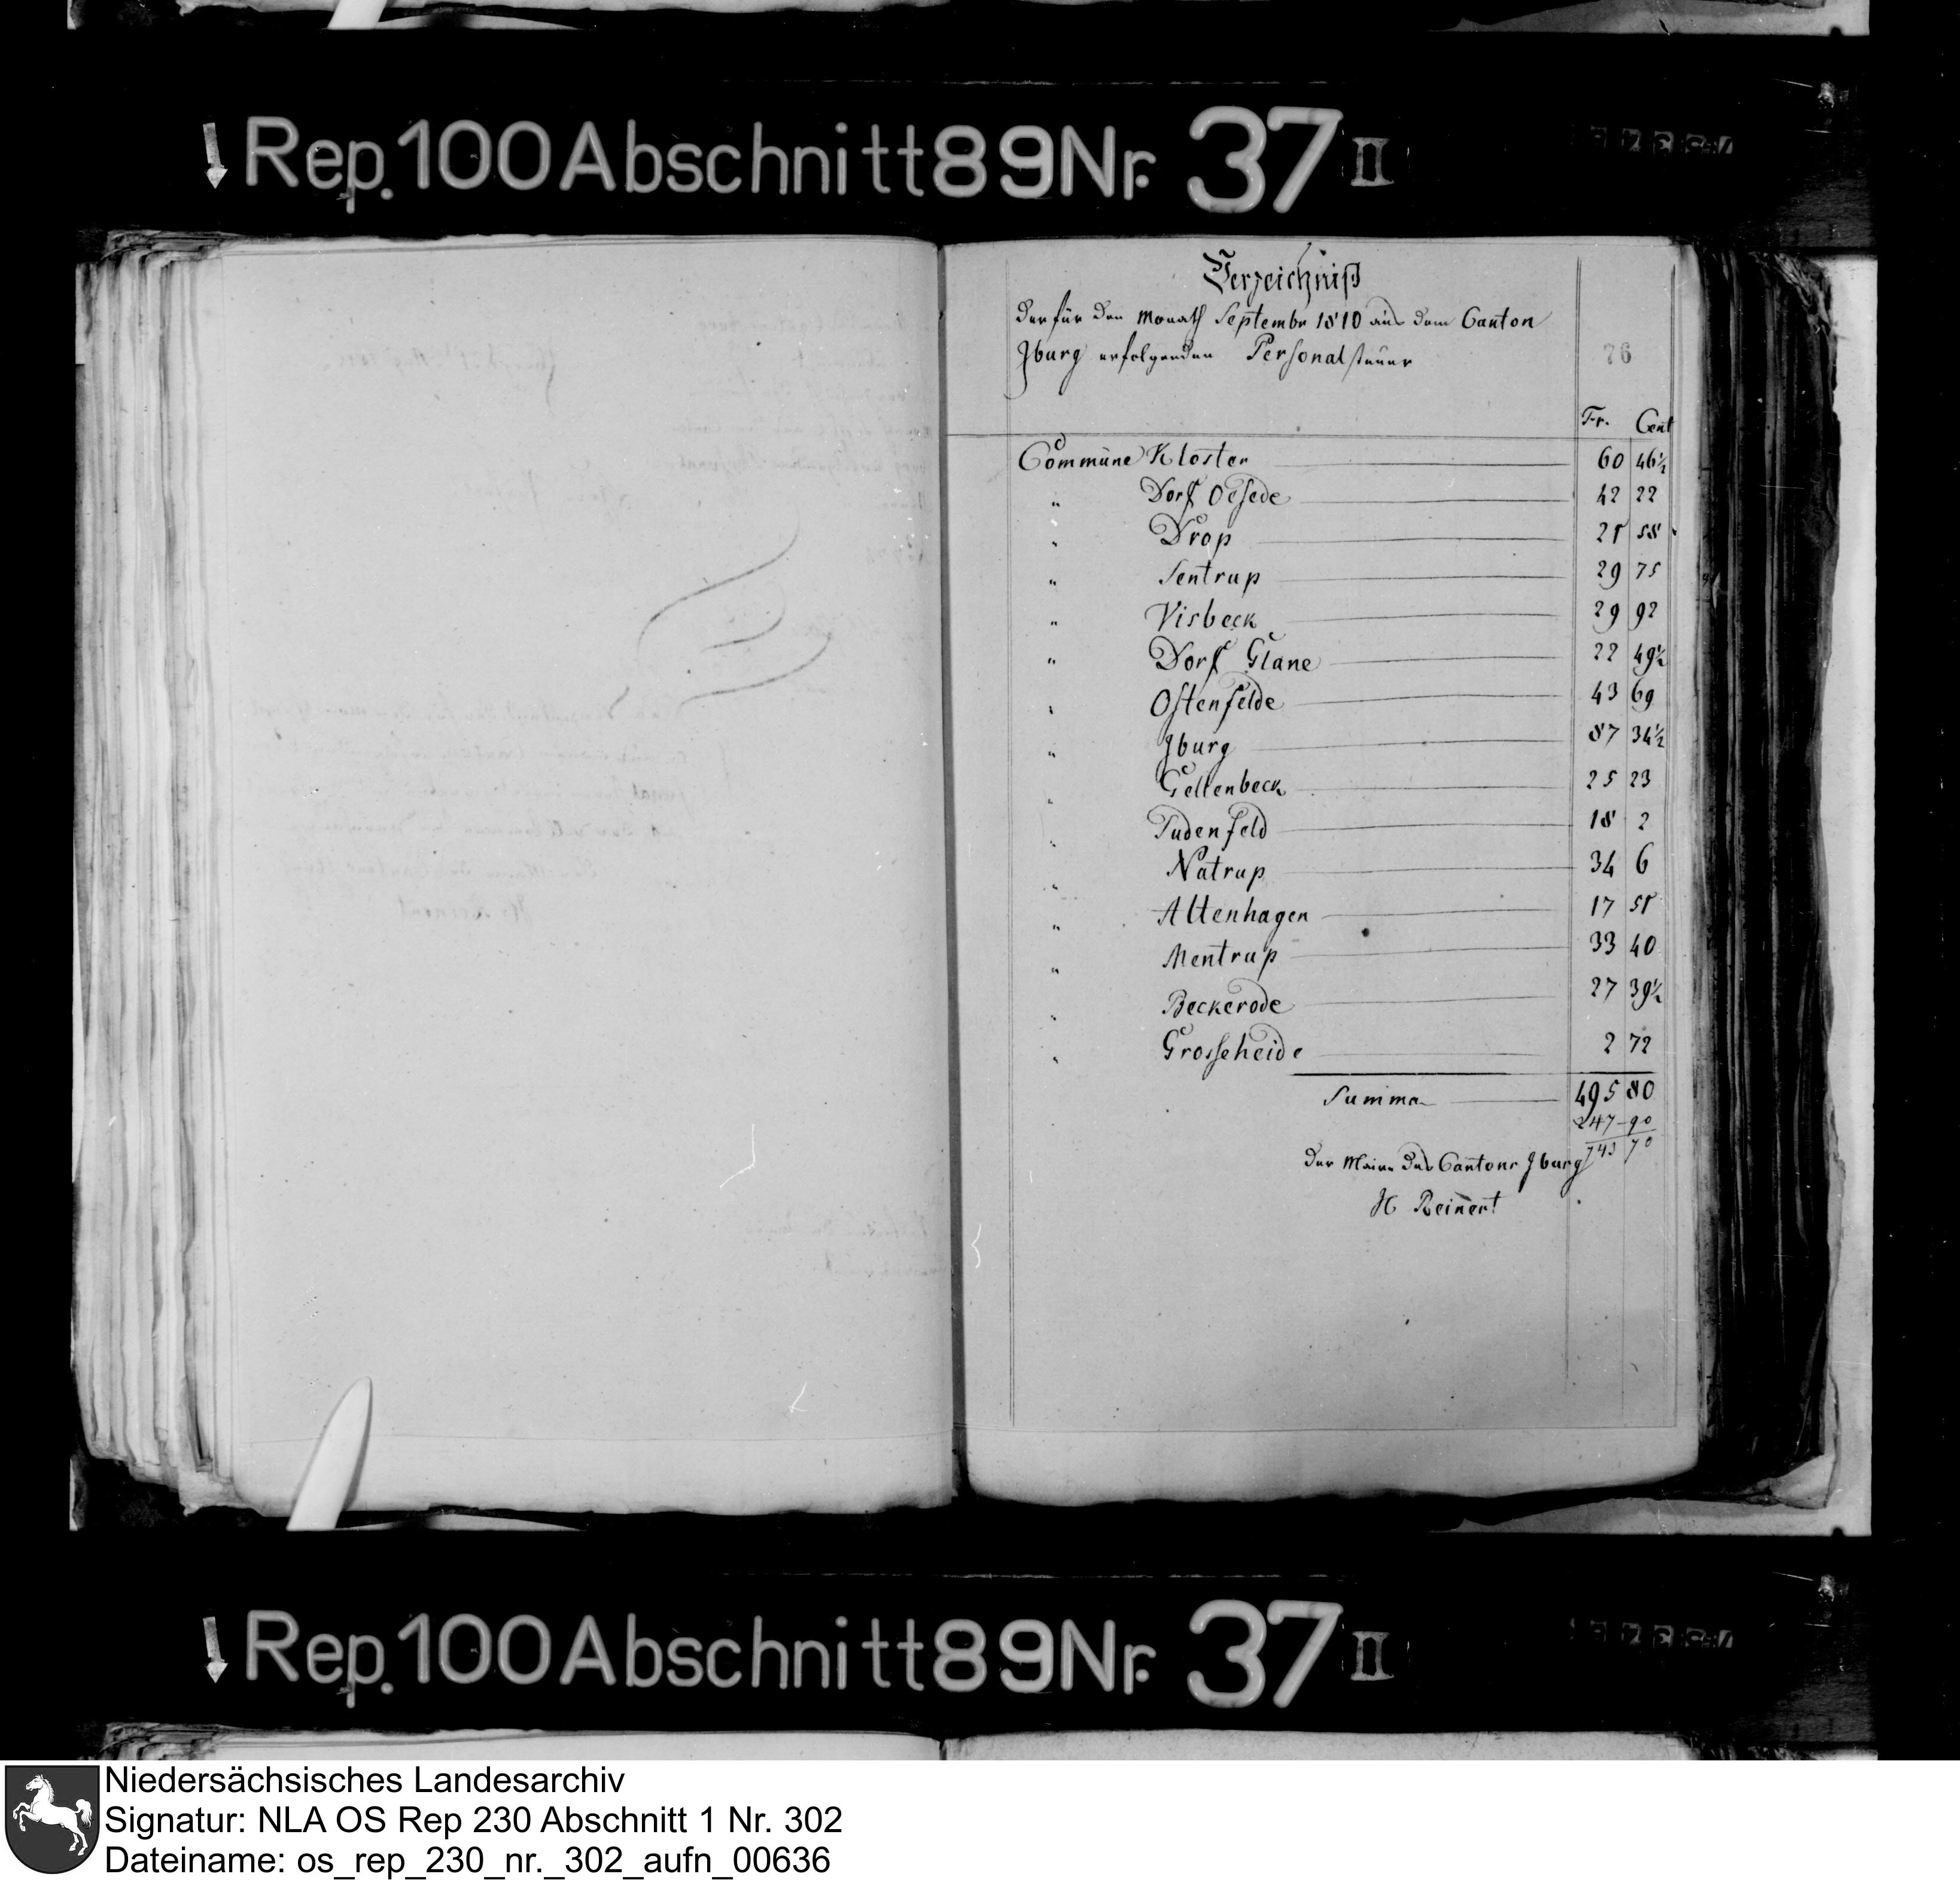 Rep. 100 Abschnitt 89 Nr. 37 II
Verzeichniß
der für den Monath Septembr 1810 aus dem Canton
Jburg erfolgenden Personalsteuer
76
Fr. Cent
Commüne Kloster 60 46½
" Dorf Oesede 42 22
" Drop 21 58
" Sentrup 29 75
" Visbeck 29 92
" Dorf Glane 22 49½
" Ostenfelde 43 69
" Jburg 87 34½
" Gellenbeck 25 23
" Sudenfeld 18 2
" Natrup 34 6
" Altenhagen 17 51
" Mentrup 33 40
" Beckerode 27 39½
" Grosseheide 2 72
Summa 495 80
247-90
743 70
Der Maire des Cantons Jburg
H Reinert
Rep. 100 Abschnitt 89 Nr. 37 II
Niedersächsisches Landesarchiv
Signatur: NLA OS Rep 230 Abschnitt 1 Nr. 302
Dateiname: os_rep_230_nr._302_aufn_00636